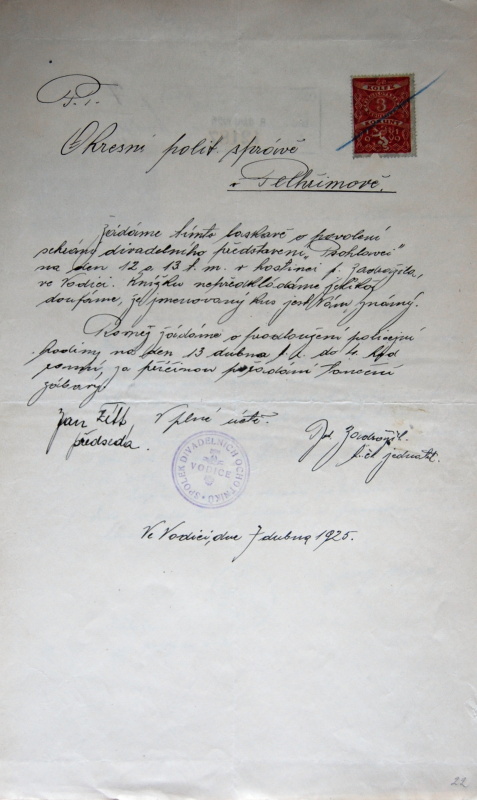 P. T.
KOLEK
3
KORUNY
Okresní polit. správě
v Pelhřimově.
Žádáme tímto laskavě o povolení
sehrání divadelního představení "Psohlavci"
na den 12 a 13 t. m. v hostinci p. Zadražila,
ve Vodici. Knížku nepředkládáme jelikož
doufáme, že jmenovaný kus jest Vám známý.
Rovněž žádáme o prodloužení policejní
hodiny na den 13 dubna t. r. do 4 hod
ranní, za příčinou pořádání taneční
zábavy.
Jan Zítt V plné úctě. Zadražil.
předseda. t. č. jednatel.
SPOLEK DIVADELNÍCH OCHOTNÍKŮ
VODICE
Ve Vodici, dne 7 dubna 1925.
22